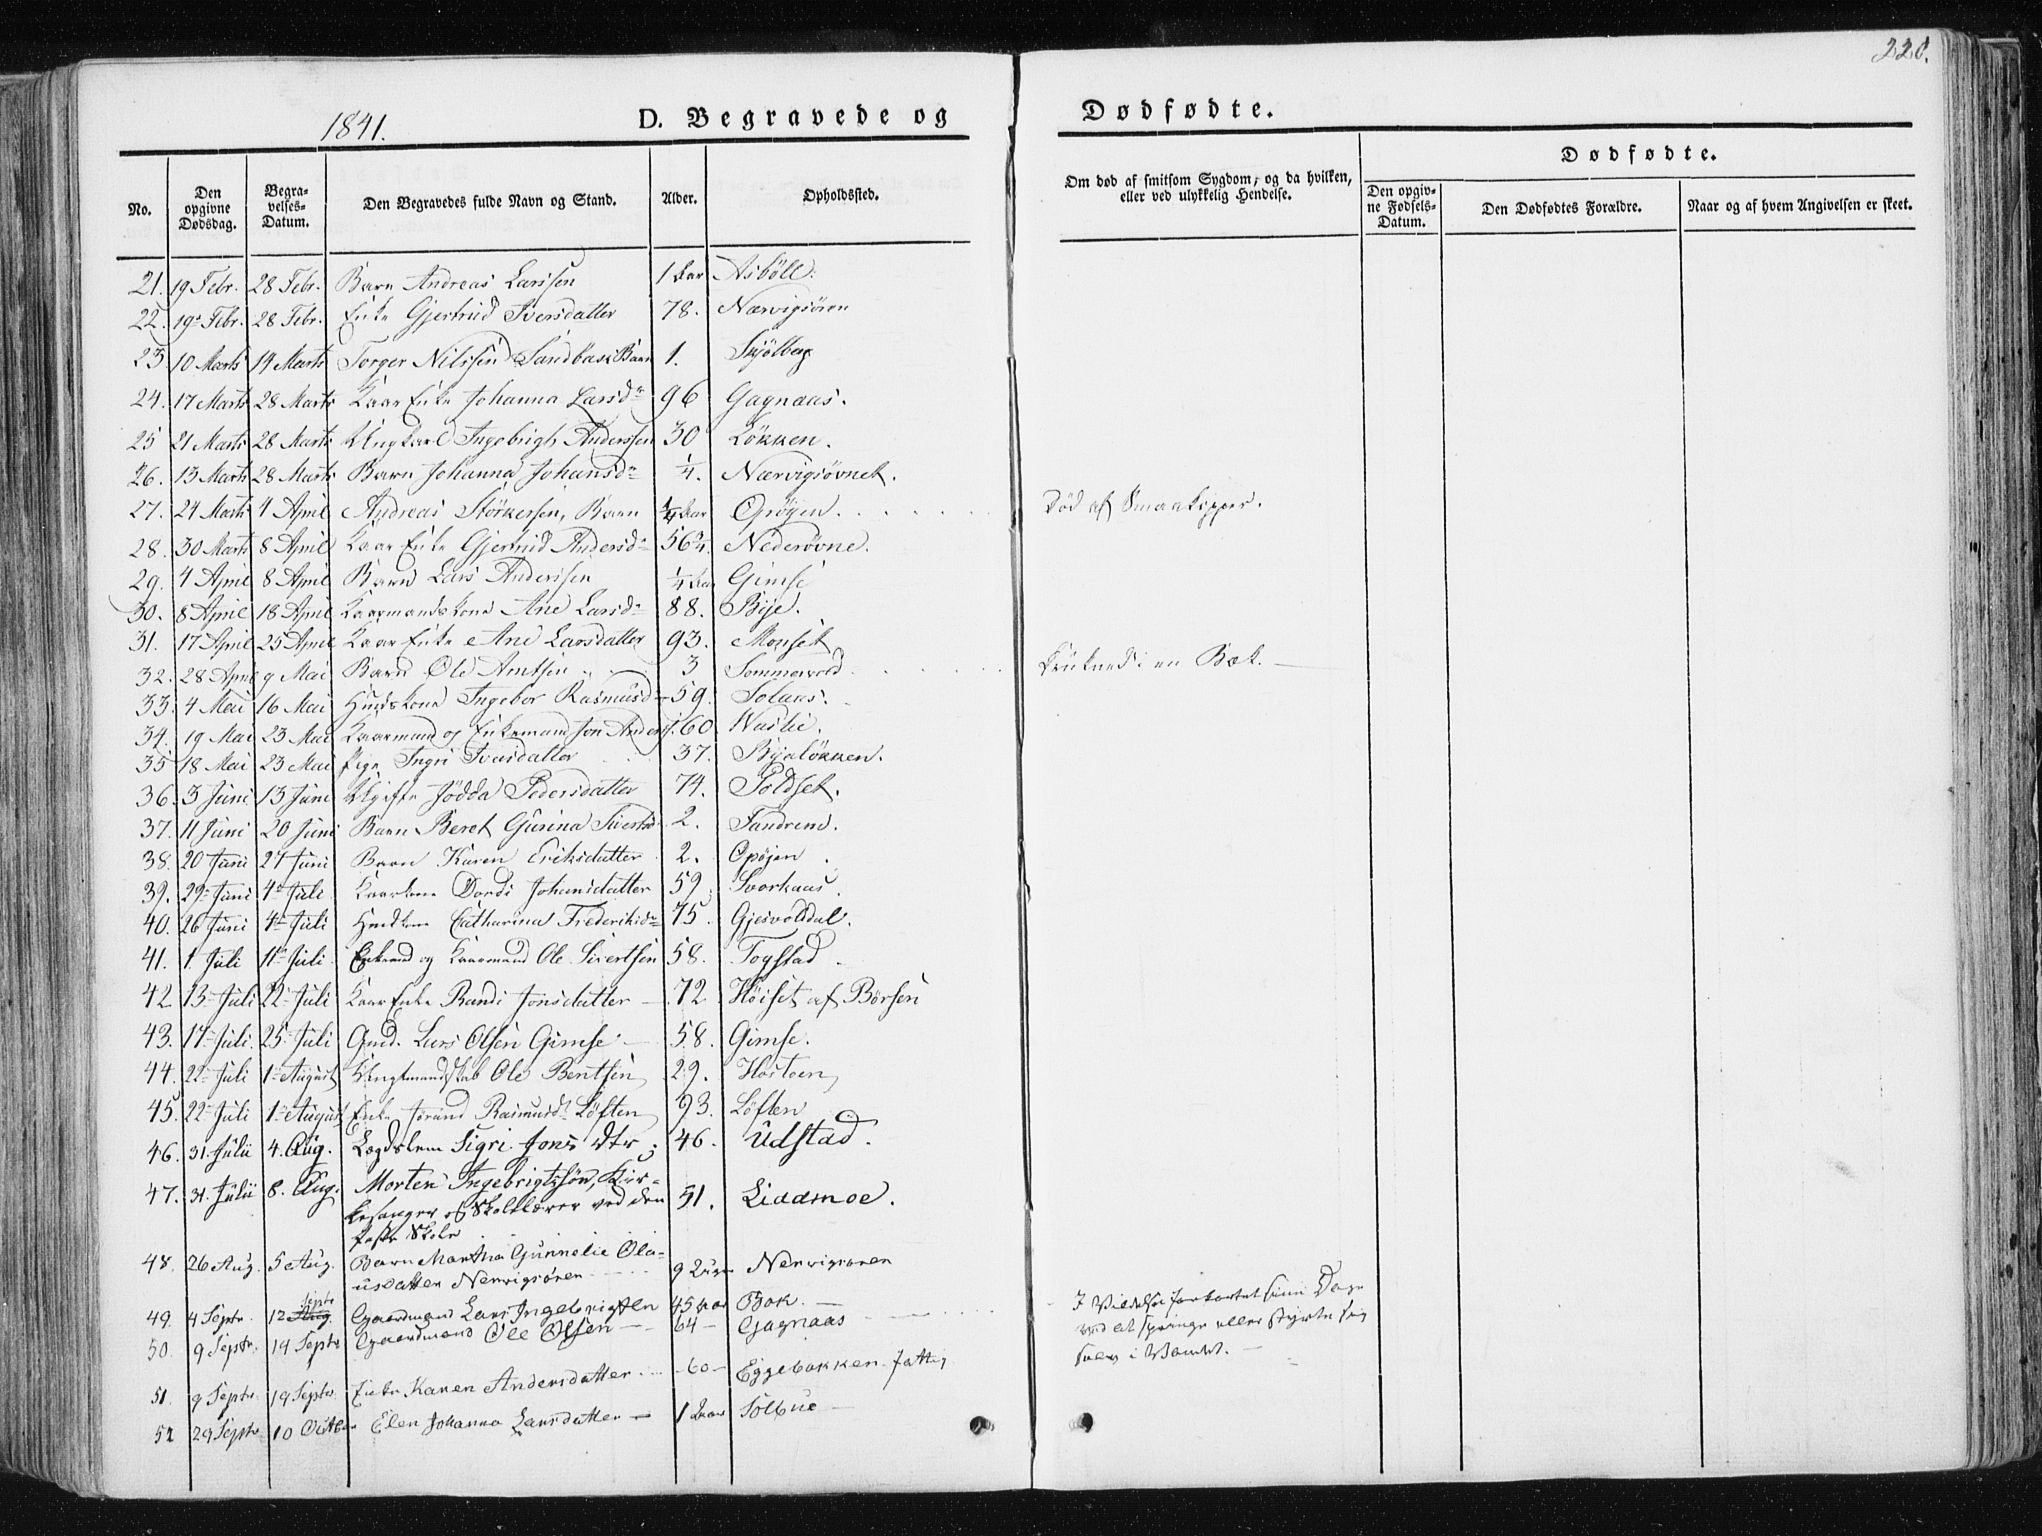 220.
1841.
D. Begravede og
Dødfødte.
No.
Den opgivne Dødsdag.
Begravelses-Datum.
Den Begravedes fulde Navn og Stand.
Alder.
Opholdssted.
Om død af smitsom Sygdom, og da hvilken, eller ved ulykkelig Hendelse.
Dødfødte.
Den opgivne Fødsels-Datum.
Den Dødfødtes Forældre.
Naar og af hvem Angivelsen er skeet.
21. 19 Febr. 28 Febr. Barn Andreas Larssen 1 Aar Asböll.
22. 19 Febr. 28 Febr. Enke Gjertrud Iversdatter 78. Nærvigsören
23 10 Marts 14 Marts Torger Nilssen Barn 1.
24. 17 Marts 28 Marts Kaar Enke Johanna Larsdr 96 Gagnaas.
25 21 Marts 28 Marts Ungkarl Ingebrigt Anderssen 30 Løkken.
26. 13 Marts 28 Marts Barn Johanna Johansdr ¼. Nærvigsövnet.
27. 24 Marts 4 April Andreas Störkersen, Barn ¼ Aar Opöyen . . . . Död af Smaakopper.
28. 30 Marts 8 April Kaar Enke Gjertrud Andersdr 56 Nederövne.
29. 4 April 8 April Barn Lars Anderssen ¼ Aar Gimse
30. 8 April 18 April Kaarmandskone Ane Larsdr 88. Bye.
31. 17 April 25 April Kaar Enke Ane Larsdatter 93. Monset
32. 28 April 9 Mai Barn Ole Arntsen 3 Sommervold . . . . i en Bæk.
33. 4 Mai 16 Mai Huuskone Ingebor Rasmusd 59. Solaas.
34. 19 Mai 23 Mai Kaarmand og Enkemand Jon Anders. 60
35 18 Mai 23 Mai Pige Ingri Iversdatter 37. Byaløkken.
36. 3 Juni 13 Juni Ugift Jödda Pedersdatter 74. Poldset.
37. 11 Juni 20 Juni Barn Beret Gurina 2.
38. 20 Juni 27 Juni Barn Karen Eriksdatter 2. Opöjen
39. 29 Juni 4 Juli Kaarkone Dordi Johansdatter 59. Svorkaas.
40. 26 Juni 4 Juli Huskone Catharina Frederiksdr 75. Gjesvolddal.
41. 1 Juli 11 Juli Enkemd og Kaarmand Ole Sivertsen 58. Fogstad
42 13 Juli 22 Juli Kaar Enke Randi Jonsdatter 72 Höiset af Börsen
43. 17 Juli. 25 Juli Gmd. Lars Olsen Gimse 58. Gimse.
44. 22 Juli 1 August Ole Bentsen 29. Hostoen
45. 22 Juli 1 August Enke Jörand Rasmusd. Löften 93. Löften
46. 31. Julii 4. Aug. Lægdslem Sigri Jons dtr. 46. Udstad.
47. 31. Julii 8. Aug. Morten Ingebrigtssön, Kir-
kesanger og Skolelærer ved den 51. Liddmoe.
faste Skole
48. 26 Aug. 5 Aug. Barn Martha Gunnelie Ola-
usdatter Nervigsören 9 Uger Nervigsoren
49. 4 Septr. 12 Septr Gaardmand Lars Ingebrigtsen 45 Aar Bok. I Vildelse forkortet sine Dage
50. 9 Septr. 19 Septr Gaardmand Ole Olsen 64 Gagnaas ved at springe eller styrte sig
selv i Vandet.
51. 9 Septr. 19 Septr. Enke Karen Andersdatter 60 Eggebakken. fattig
52 29 Septr 10 Octbr Elen Johanna Larsdatter 1 Aar Solbue